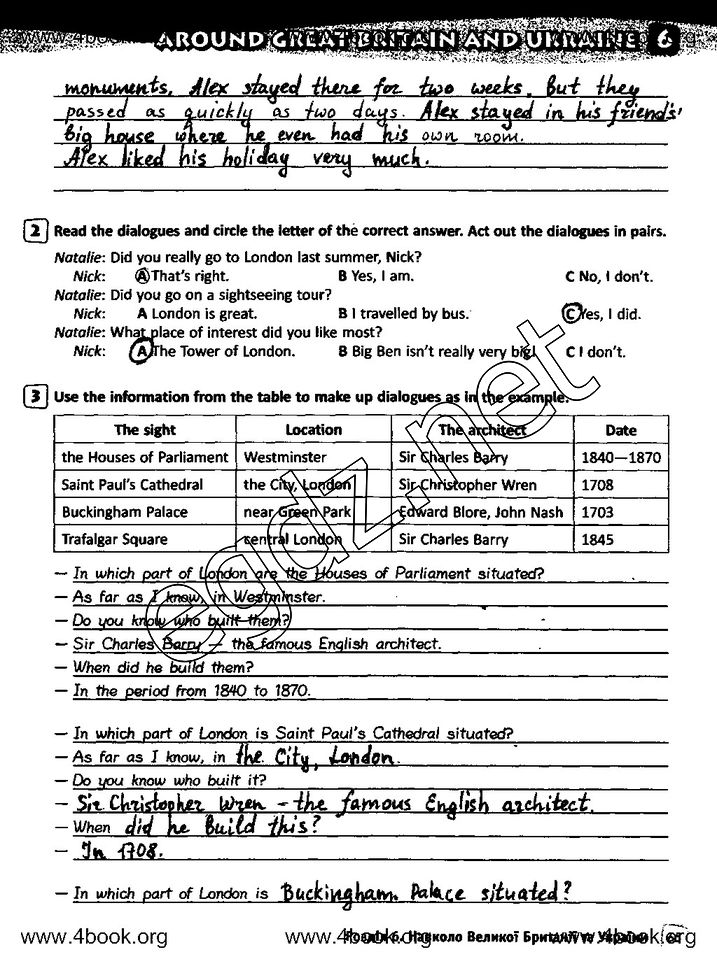 www.4book.org www.4book.org www.4book.org
AROUND GREAT BRITAIN AND UKRAINE 6
monuments. Alex stayed there for two weeks. But they
passed as quickly as two days. Alex stayed in his friend's'
big house where he even had his own room.
Alex liked his holiday very much.
2 Read the dialogues and circle the letter of the correct answer. Act out the dialogues in pairs.
Natalie: Did you really go to London last summer, Nick?
Nick: A That's right. B Yes, I am. C No, I don't.
Natalie: Did you go on a sightseeing tour?
Nick: A London is great. B I travelled by bus. C Yes, I did.
Natalie: What place of interest did you like most?
Nick: A The Tower of London. B Big Ben isn't really very big! C I don't.
3 Use the information from the table to make up dialogues as in the example.
The sight Location The architect Date
the Houses of Parliament Westminster Sir Charles Barry 1840—1870
Saint Paul's Cathedral the City, London Sir Christopher Wren 1708
Buckingham Palace near Green Park Edward Blore, John Nash 1703
Trafalgar Square central London Sir Charles Barry 1845
egdz.net
— In which part of London are the Houses of Parliament situated?
— As far as I know, in Westminster.
— Do you know who built them?
— Sir Charles Barry — the famous English architect.
— When did he build them?
— In the period from 1840 to 1870.
— In which part of London is Saint Paul's Cathedral situated?
— As far as I know, in the City, London.
— Do you know who built it?
— Sir Christopher Wren - the famous English architect.
— When did he build this?
— In 1708.
— In which part of London is Buckingham Palace situated?
www.4book.org www.4book.org www.4book.org
Розділ 6. Навколо Великої Британії та України